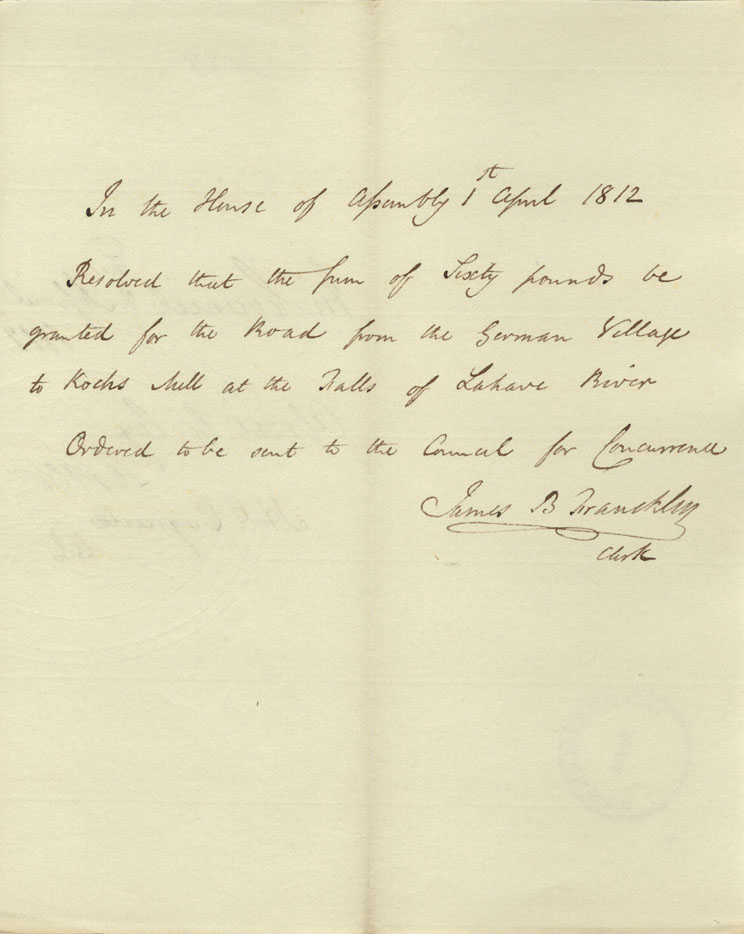 In the House of Assembly 1st April 1812
Resolved that the sum of Sixty pounds be
granted for the Road from the German Village
to Kochs Mill at the Falls of Lahave River
Ordered to be sent to the Council for Concurrence
James B Franckling
Clerk